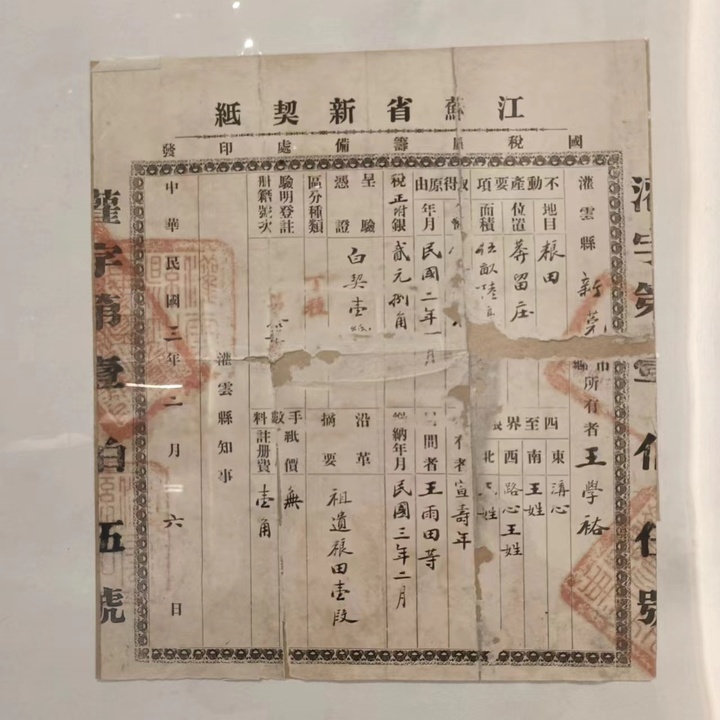 江蘇省新契紙
國稅廳籌備處印發
灌雲縣新
所有者王學裕
不動產要項
地目 粮田
位置 莽留庄
面積 伍畝陸
四至界
東 溝心
南 王姓
西 路心王姓
北 姓
取得原由
年月 民國二年一月
宣壽年
間者 王雨田等
稅正附銀 貳元捌角
納年月 民國三年二月
呈驗憑證 白契壹
沿革摘要 祖遺粮田壹段
區分種類
驗明登註冊籍號次
手數料
紙價 無
註册費 壹角
灌雲縣知事
中華民國三年二月六日
灌字第壹伯伍號